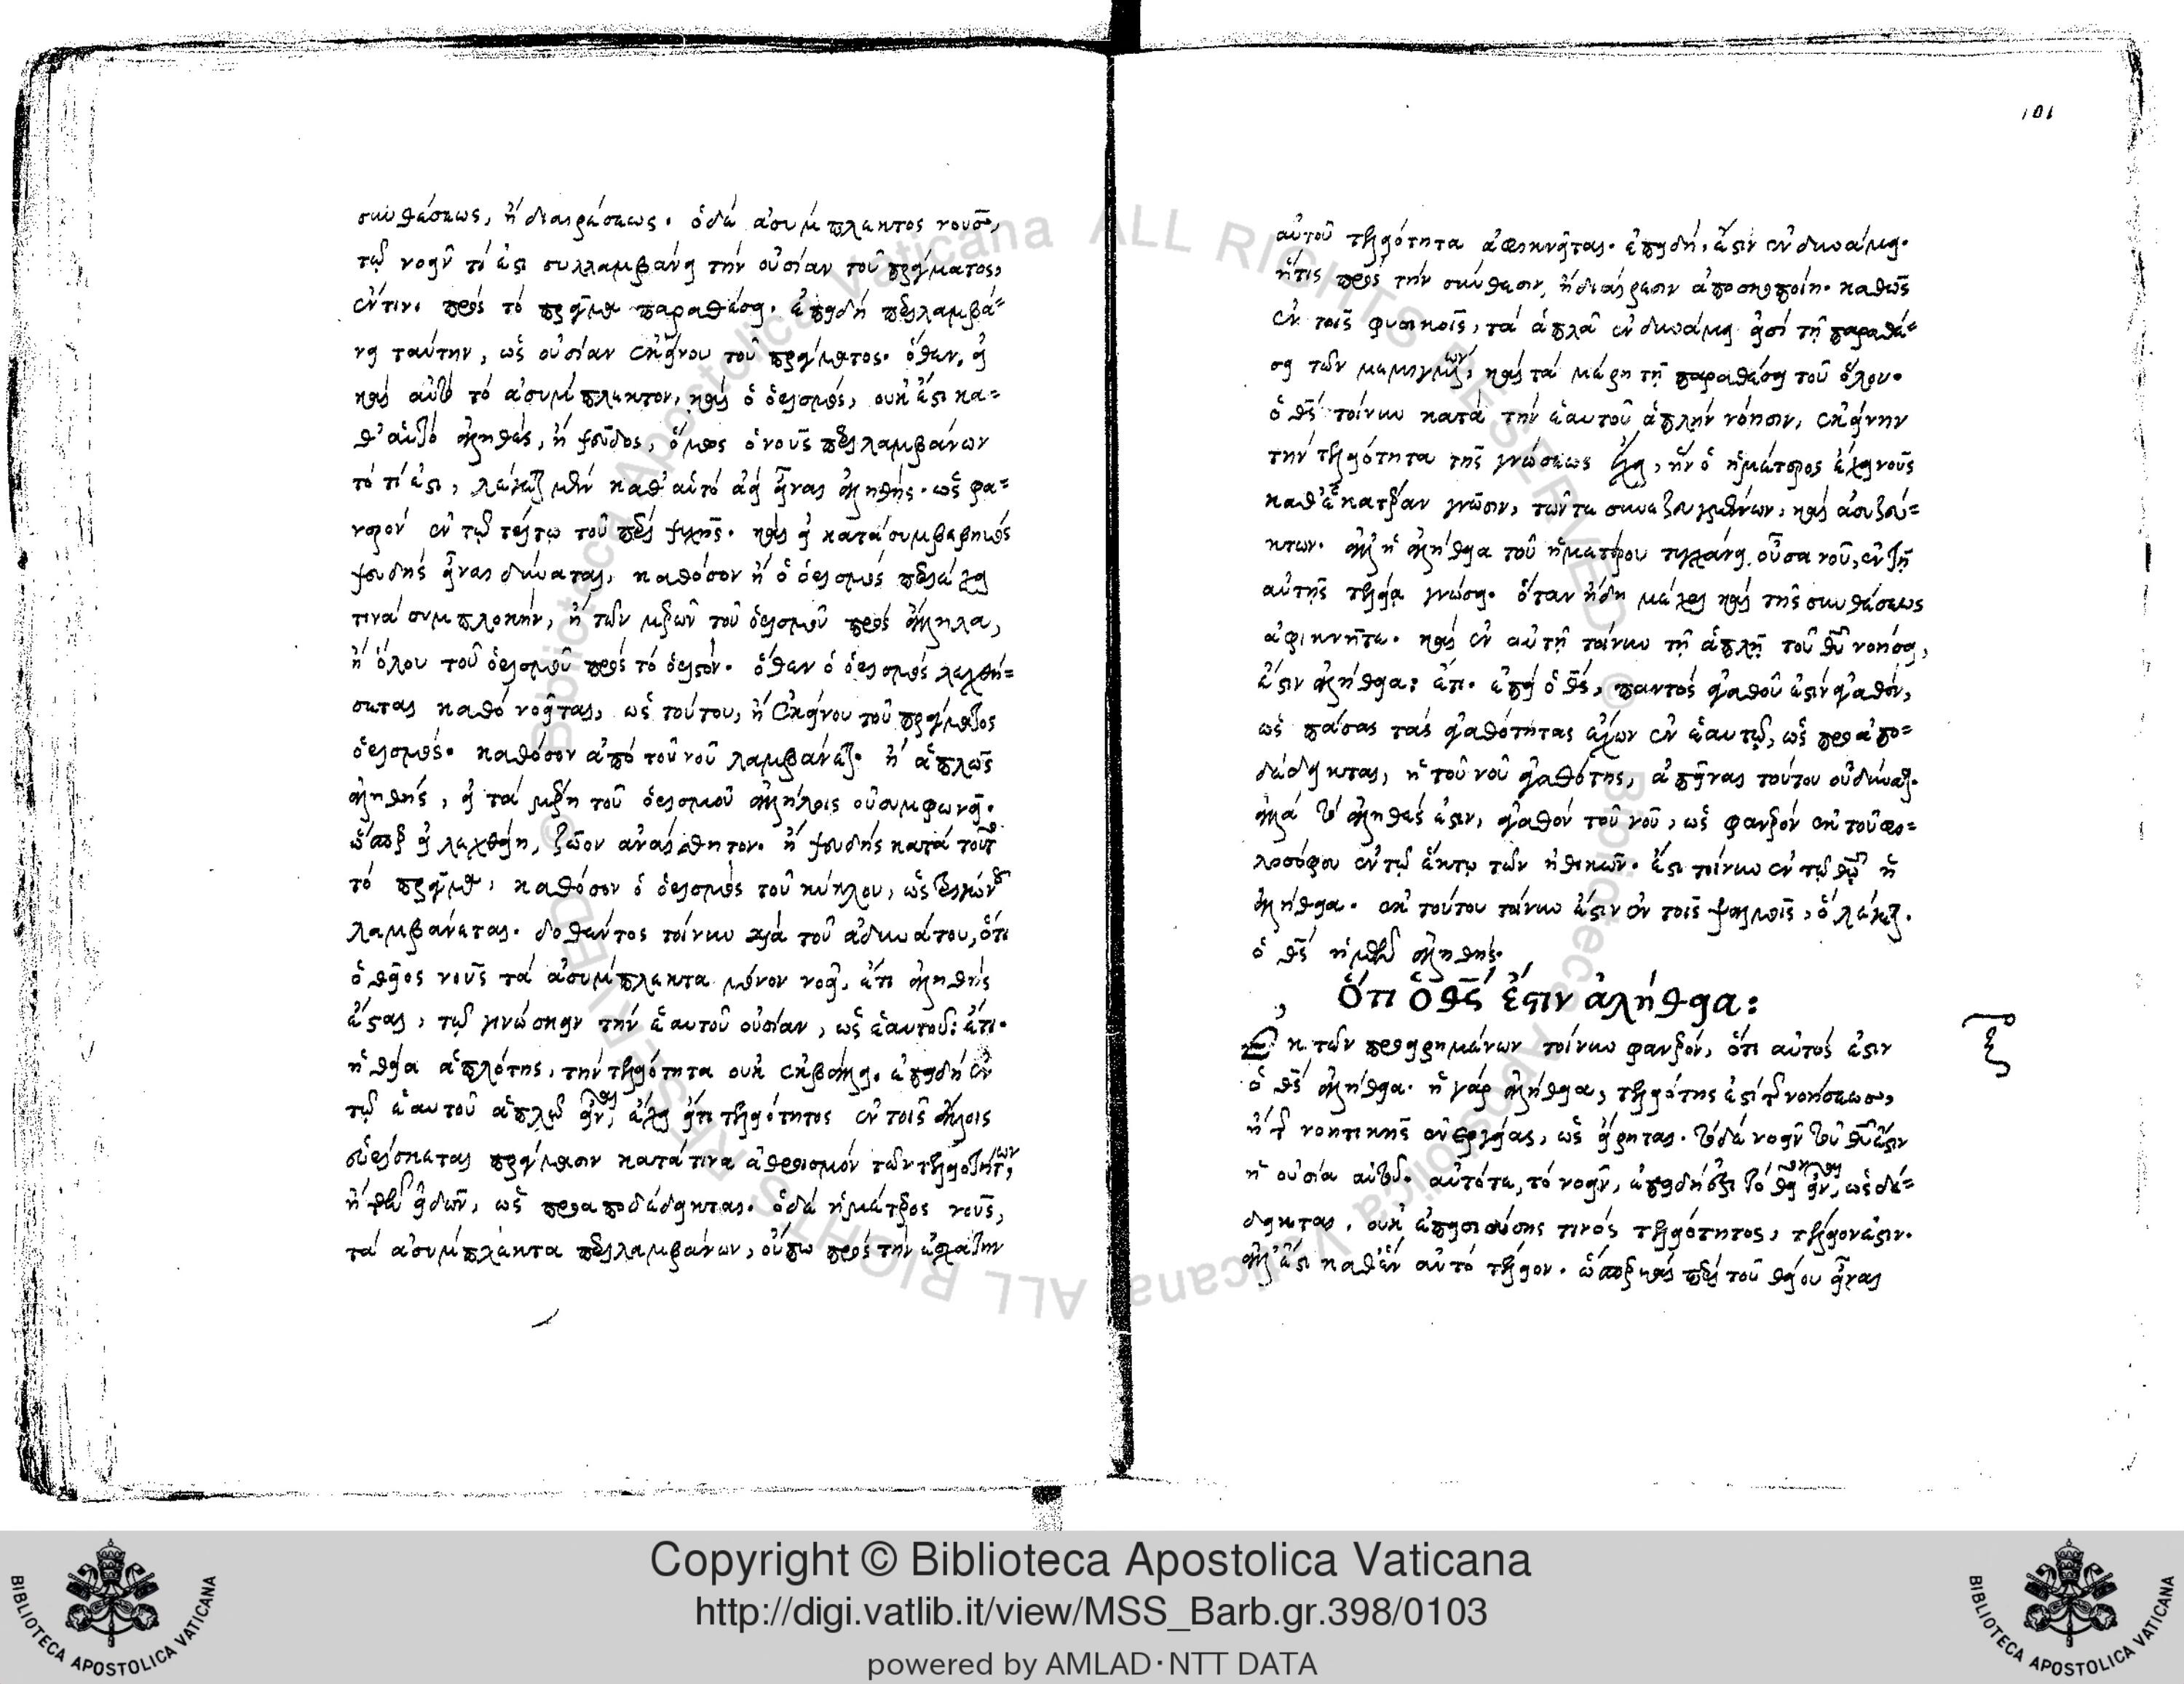 συνθέσεως, ἢ διαιρέσεως. ὁ δὲ ἀσύμπλεκτος νοῦς,
τῷ νοεῖν τί ἐστι συλλαμβάνει τὴν οὐσίαν τοῦ πράγματος,
ἔν τινι πρὸς τὸ πρᾶγμα παραθέσει. ἐπειδὴ περιλαμβά=
νει ταύτην, ὡς οὐσίαν ἐκείνου τοῦ πράγματος. ὅθεν, εἰ
καὶ αὐτὸ τὸ ἀσύμπλεκτον, καὶ ὁ ὁρισμός, οὐκ ἔστι κα=
θ' αὑτὸ ἀληθές, ἢ ψεῦδος, ὅμως ὁ νοῦς περιλαμβάνων
τὸ τί ἐστι, λέγεται μὲν καθ' αὑτὸ ἀεὶ εἶναι ἀληθής. ὡς φα=
νερὸν ἐν τῷ τρίτῳ τοῦ περὶ ψυχῆς. καὶ εἰ κατὰ συμβεβηκὸς
ψευδὴς εἶναι δύναται, καθόσον ἢ ὁ ὁρισμὸς περιέχει
τινὰ συμπλοκήν, ἢ τῶν μερῶν τοῦ ὁρισμοῦ πρὸς ἄλληλα,
ἢ ὅλου τοῦ ὁρισμοῦ πρὸς τὸ ὁριστόν. ὅθεν ὁ ὁρισμὸς λεχθή=
σεται καθὸ νοεῖται, ὡς τούτου, ἢ ἐκείνου τοῦ πράγματος
ὁρισμός. καθόσον ἀπὸ τοῦ νοῦ λαμβάνεται. ἢ ἁπλῶς
ἀληθής, εἰ τὰ μέρη τοῦ ὁρισμοῦ ἀλλήλοις οὐ συμφωνεῖ.
ὥσπερ εἰ λεχθείη, ζῶον ἀναίσθητον. ἢ ψευδὴς κατὰ τοῦτο
τὸ πρᾶγμα, καθόσον ὁ ὁρισμὸς τοῦ κύκλου, ὡς τριγώνου
λαμβάνεται. δοθέντος τοίνυν διὰ τοῦ ἀδυνάτου, ὅτι
ὁ θεῖος νοῦς τὰ ἀσύμπλεκτα μόνον νοεῖ, ἔτι ἀληθὴς
ἔσται, τῷ γινώσκειν τὴν ἑαυτοῦ οὐσίαν, ὡς ἑαυτοῦ: ἔτι.
ἡ θεία ἁπλότης, τὴν τελειότητα οὐκ ἐκβάλλει. ἐπειδὴ ἐν
τῷ ἑαυτοῦ ἁπλῷ εἶναι, ἔχει εἴτι τελειότητος ἐν τοῖς ἄλλοις
εὑρίσκεται πράγμασιν κατά τινα ἀθροισμὸν τῶν τελειοτήτων,
ἢ τῶν εἰδῶν, ὡς προαποδέδεικται. ὁ δὲ ἡμέτερος νοῦς,
τὰ ἀσύμπλεκτα περιλαμβάνων, οὔπω πρὸς τὴν ἐσχάτην
101
αὐτοῦ τελειότητα ἀφικνεῖται. ἐπειδή, ἔστιν ἐν δυνάμει.
ἥτις πρὸς τὴν σύνθεσιν, ἢ διαίρεσιν ἀποσκοποίη. καθὼς
ἐν τοῖς φυσικοῖς, τὰ ἁπλᾶ ἐν δυνάμει εἰσὶ τῇ παραθέ=
σει τῶν μεμιγμένων, καὶ τὰ μέρη τῇ παραθέσει τοῦ ὅλου.
ὁ θς τοίνυν κατὰ τὴν ἑαυτοῦ ἁπλῆν νόησιν, ἐκείνην
τὴν τελειότητα τῆς γνώσεως ἔχει, ἣν ὁ ἡμέτερος ἔχει νοῦς
καθ' ἑκατέραν γνῶσιν, τῶν τε συνεζευγμένων, καὶ ἀσυζεύ=
κτων. ἀλλ' ἡ ἀλήθεια τοῦ ἡμετέρου τυγχάνει οὖσα νοῦ, ἐν τῇ
αὐτῆς τελείᾳ γνώσει. ὅταν ἤδη μέχρι καὶ τῆς συνθέσεως
ἀφίκνηται. καὶ ἐν αὐτῇ τοίνυν τῇ ἁπλῇ τοῦ θυ νοήσει,
ἔστιν ἀλήθεια: ἔτι. ἐπεὶ ὁ θς, παντὸς ἀγαθοῦ ἐστὶν ἀγαθόν,
ὡς πάσας τὰς ἀγαθότητας ἔχων ἐν ἑαυτῷ, ὡς προαπο=
δέδεικται, ἡ τοῦ νοῦ ἀγαθότης, ἀπεῖναι τούτου οὐ δύναται.
ἀλλὰ τὸ ἀληθές ἐστιν, ἀγαθὸν τοῦ νοῦ, ὡς φανερὸν ἐκ τοῦ φι=
λοσόφου ἐν τῷ ἕκτῳ τῶν ἠθικῶν. ἔστι τοίνυν ἐν τῷ θῷ ἡ
ἀλήθεια. ἐκ τούτου τοίνυν ἐστὶν ἐν τοῖς ψαλμοῖς, ὃ λέγεται.
ὁ θς ἡμῶν ἀληθής.
Ὅτι ὁ θς ἐστιν ἀλήθεια:
Ἐκ τῶν προειρημένων τοίνυν φανερόν, ὅτι αὐτός ἐστιν
ξ
ὁ θς ἀλήθεια. ἡ γὰρ ἀλήθεια, τελειότης ἐστὶ τῆς νοήσεως,
ἢ τῆς νοητικῆς ἐνεργείας, ὡς εἴρηται. τὸ δὲ νοεῖν τοῦ θυ ἐστιν
ἡ οὐσία αὐτοῦ. αὐτό τε, τὸ νοεῖν, ἐπειδή ἐστι τὸ θεῖον εἶναι, ὡς δέ=
δεικται, οὐκ ἐπεισιούσης τινὸς τελειότητος, τέλειόν ἐστιν.
ἀλλ' ἔστι καθ' ἓν αὐτὸ τέλειον. ὥσπερ καὶ περὶ τοῦ θείου εἶναι